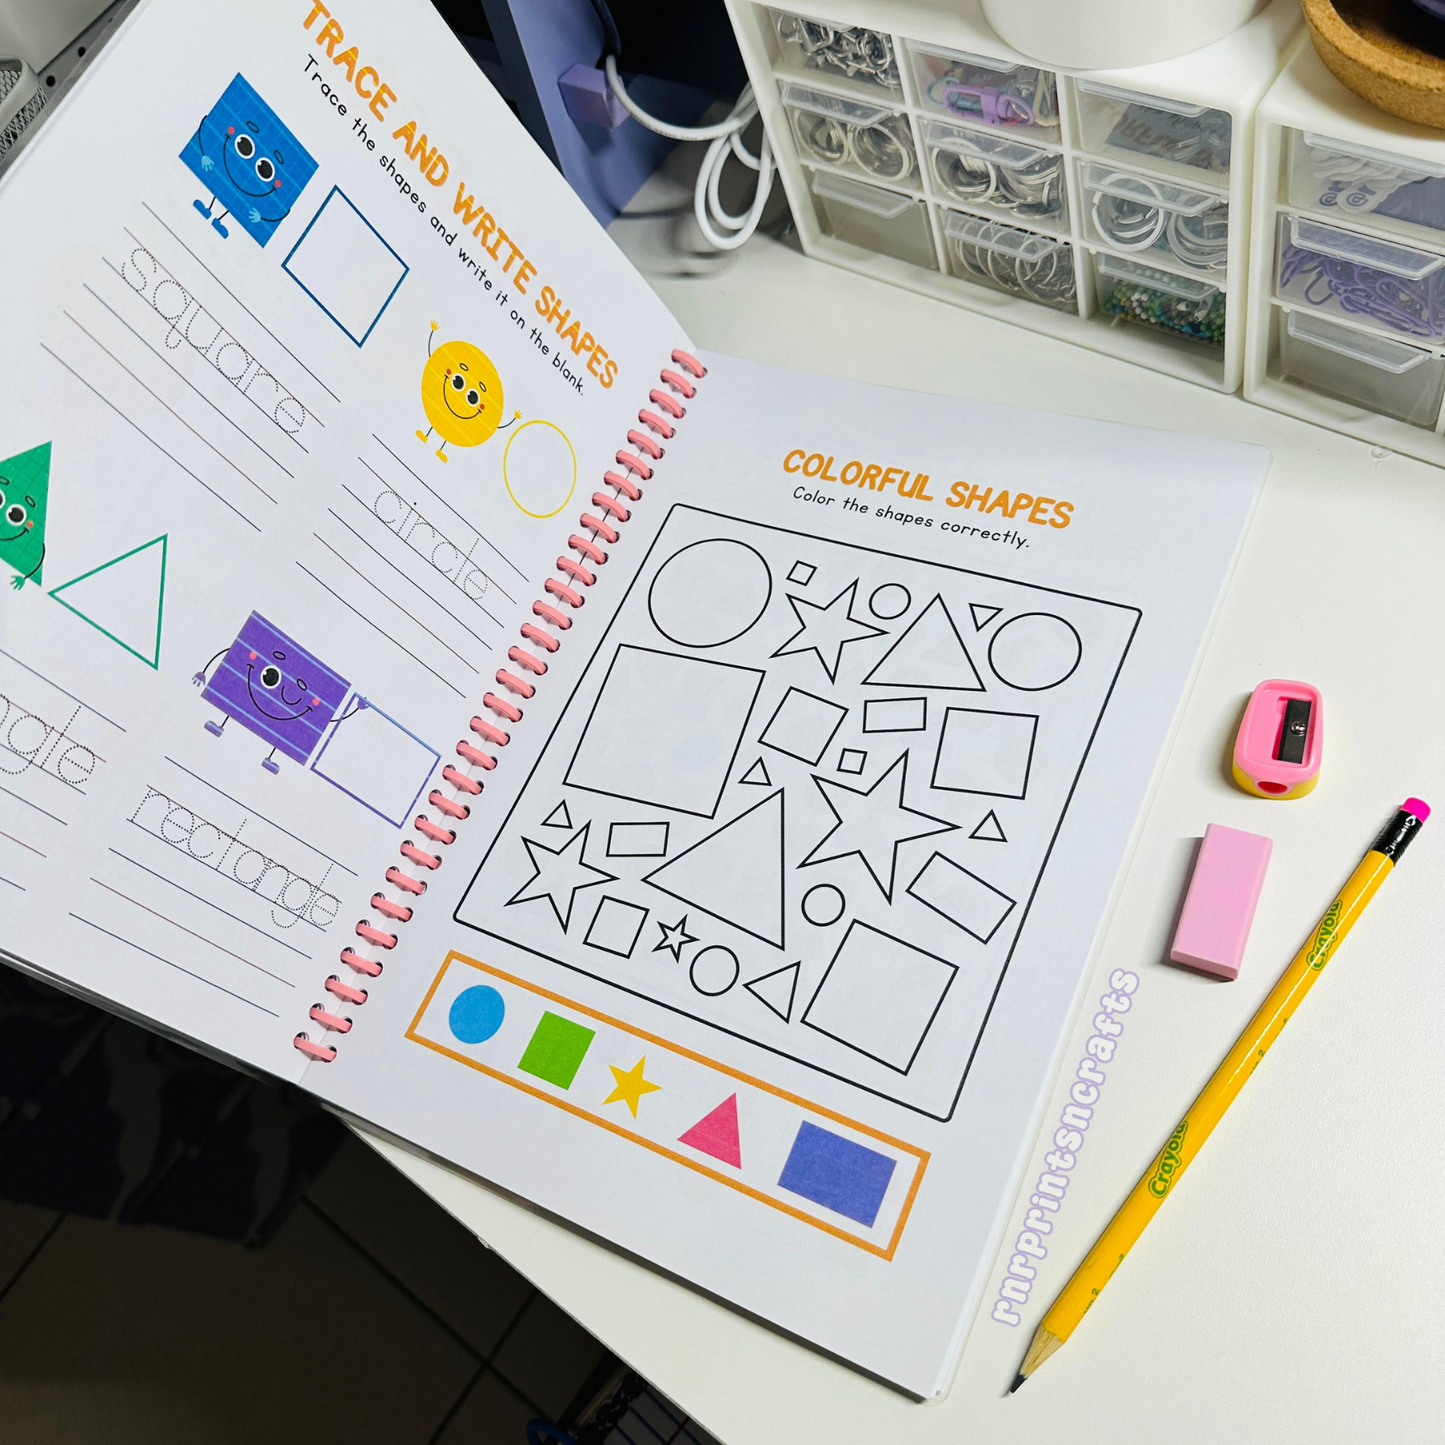 TRACE AND WRITE SHAPES
Trace the shapes and write it on the blank.
square
circle
rectangle
COLORFUL SHAPES
Color the shapes correctly.
Crayola
Crayola
No 2
rnrprintsncrafts